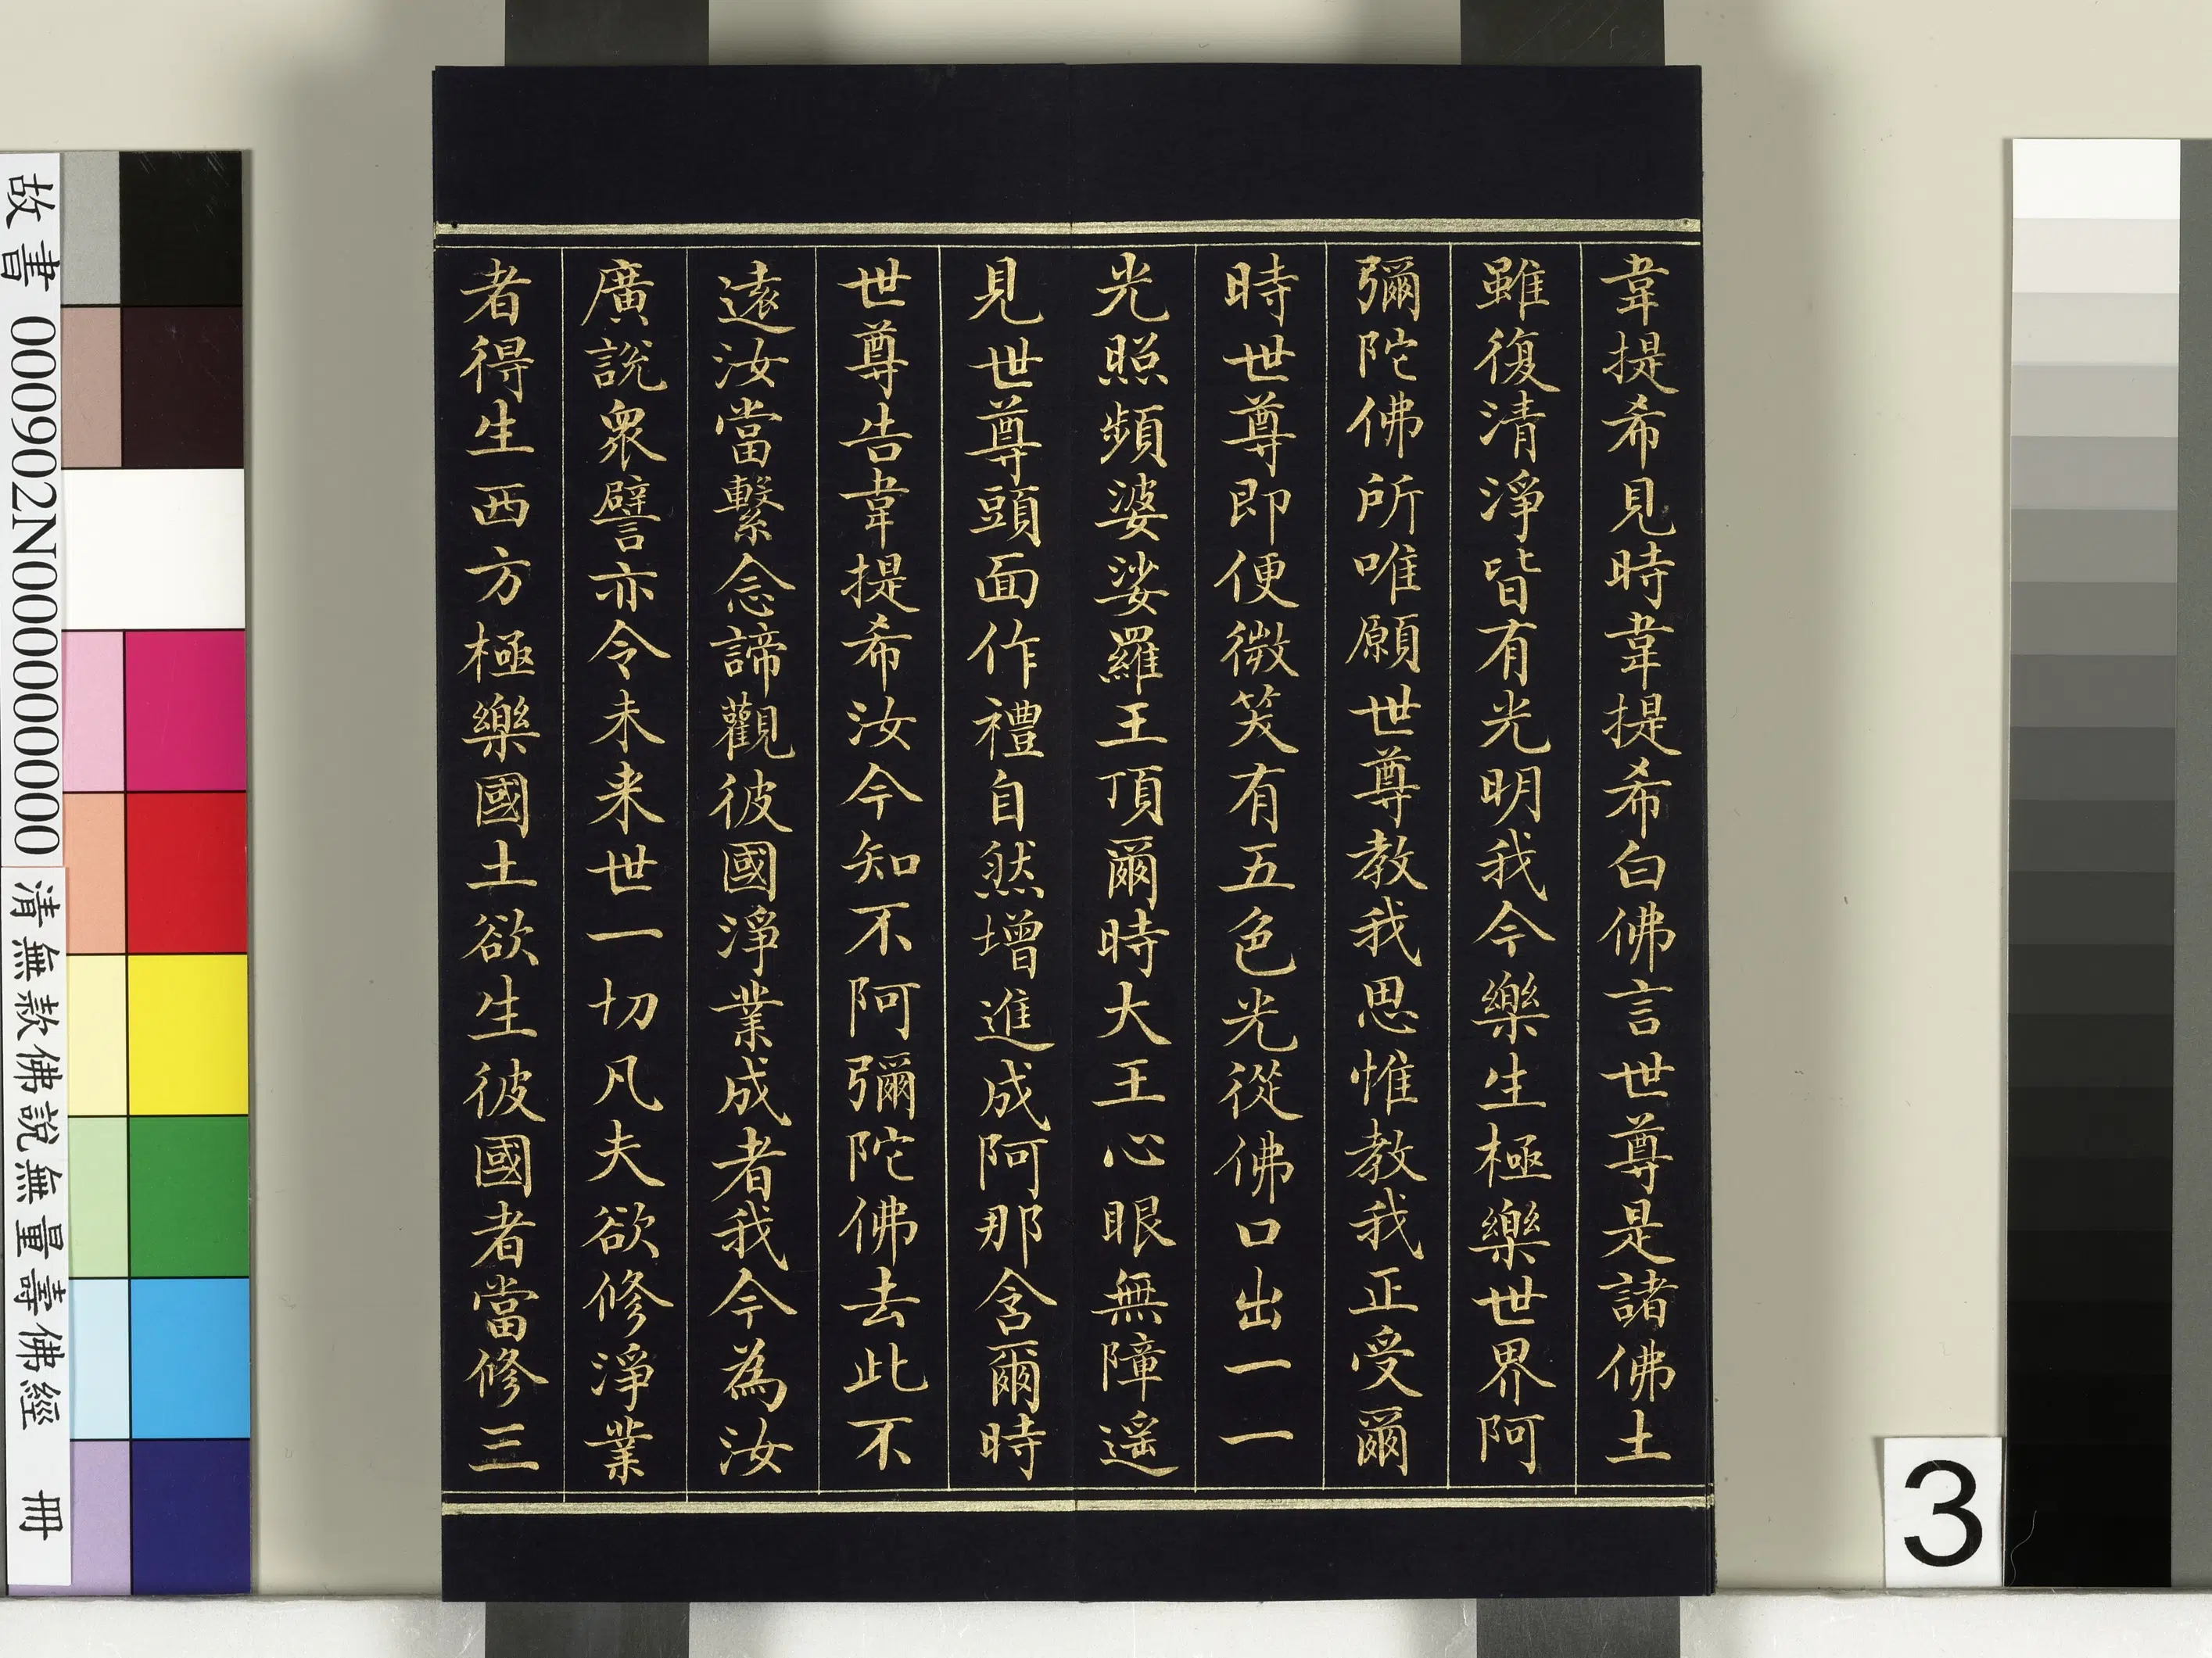 韋提希見時韋提希白佛言世尊是諸佛土
雖復清淨皆有光明我今樂生極樂世界阿
彌陀佛所唯願世尊教我思惟教我正受爾
時世尊即便微笑有五色光從佛口出一一
光照頻婆娑羅王頂爾時大王心眼無障遥
見世尊頭面作禮自然增進成阿那含爾時
世尊告韋提希汝今知不阿彌陀佛去此不
遠汝當繫念諦觀彼國淨業成者我今為汝
廣說衆譬亦令未来世一切凡夫欲修淨業
者得生西方極樂國土欲生彼國者當修三
故書 000902N000000000
清無款佛說無量壽佛經 冊
3